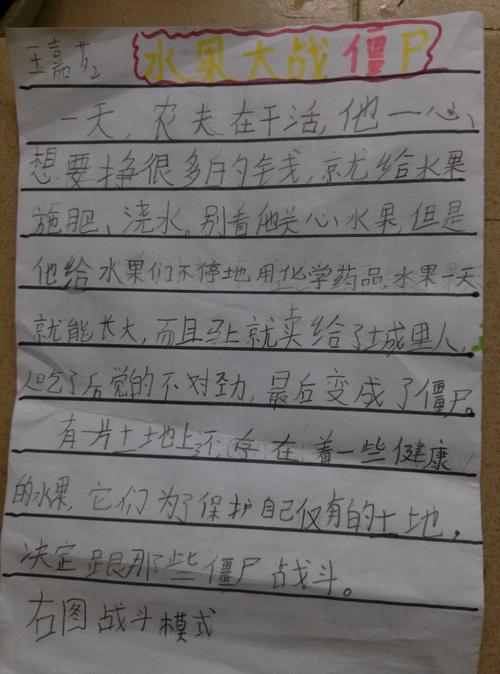 王嘉艺2 水果大战僵尸
一天，农夫在干活，他一心
想要挣很多的钱，就给水果
施肥、浇水。别看他关心水果，但是
他给水果们不停地用化学药品，水果一天
就能长大，而且马上就卖给了城里人，
人吃了后觉的不对劲，最后变成了僵尸。
有一片土地上还存在着一些健康
的水果，它们为了保护自己仅有的土地，
决定跟那些僵尸战斗。
右图战斗模式